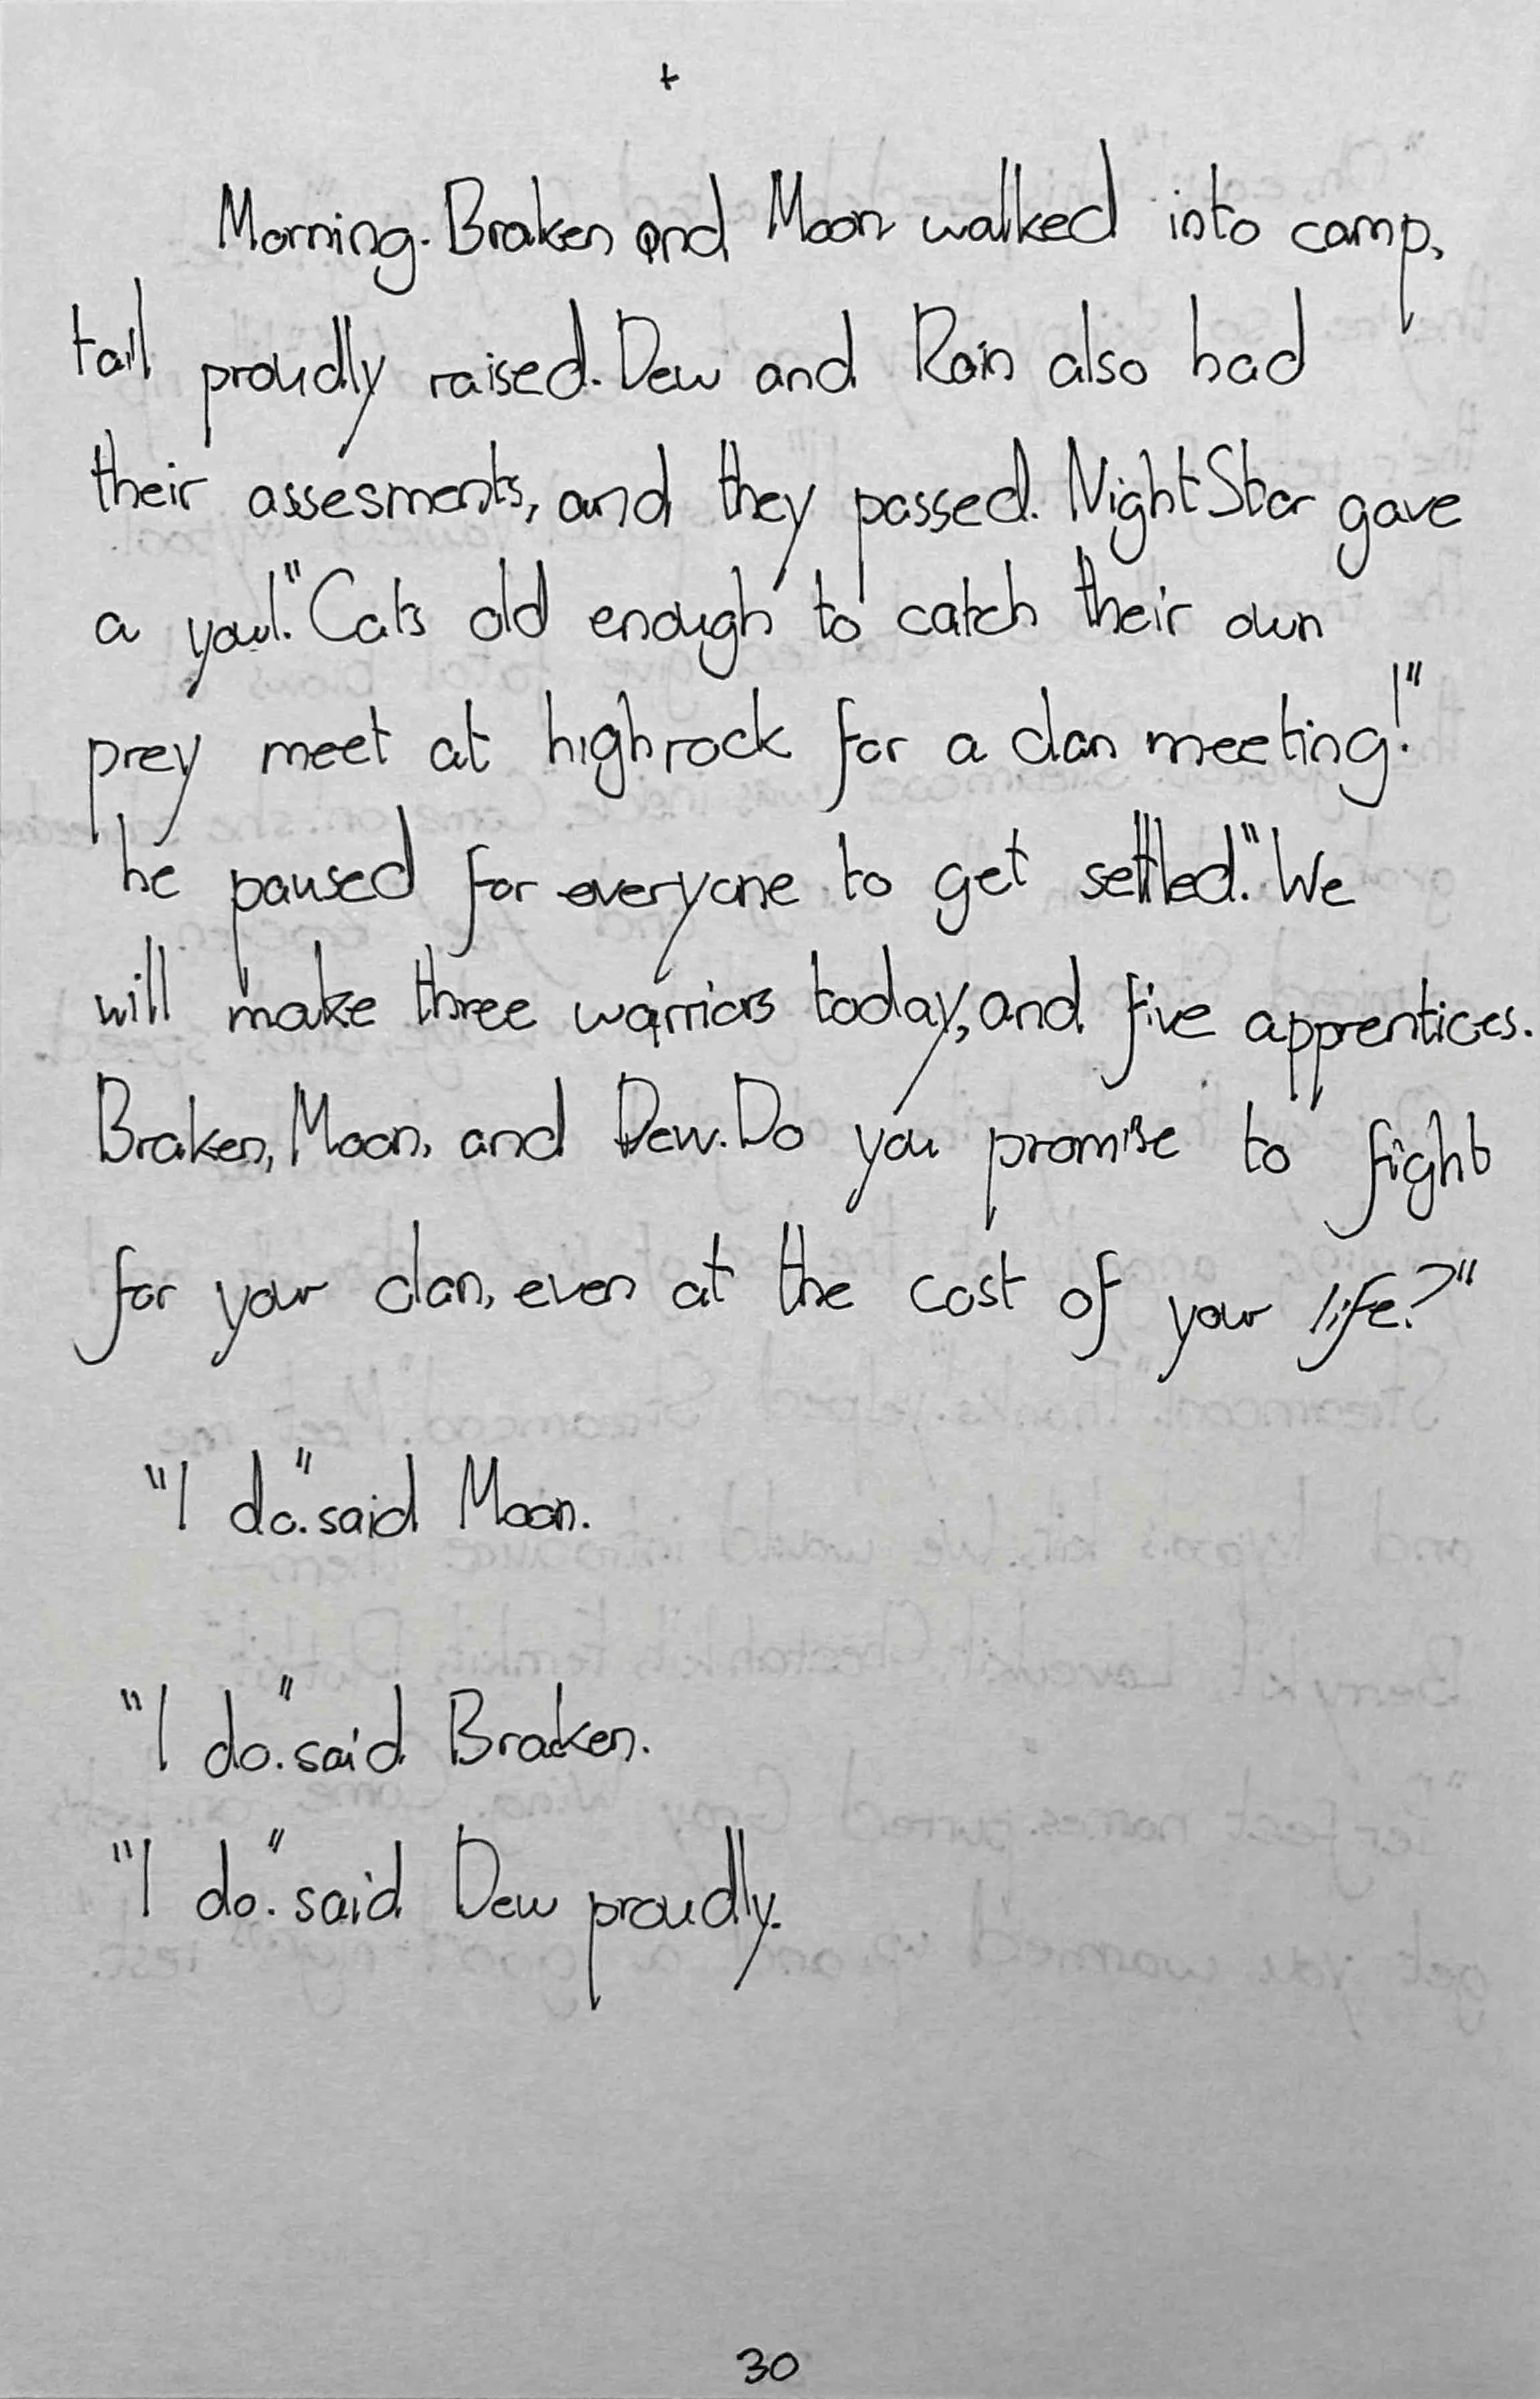 +
Morning. Braken and Moon walked into camp,
tail proudly raised. Dew and Rain also had
their assesments, and they passed. NightStar gave
a yowl. "Cats old enough to catch their own
prey meet at highrock for a clan meeting!"
he paused for everyone to get settled. "We
will make three warriors today, and five apprentices.
Braken, Moon, and Dew. Do you promise to fight
for your clan, even at the cost of your life?"
"I do." said Moon.
"I do." said Braken.
"I do." said Dew proudly.
30